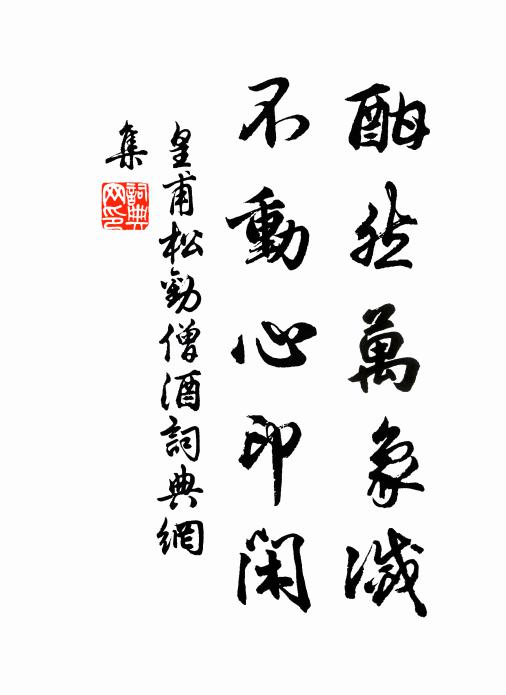 酣然萬象滅
不動心印閑
皇甫松勸僧酒詞典網
集
詞典
网印